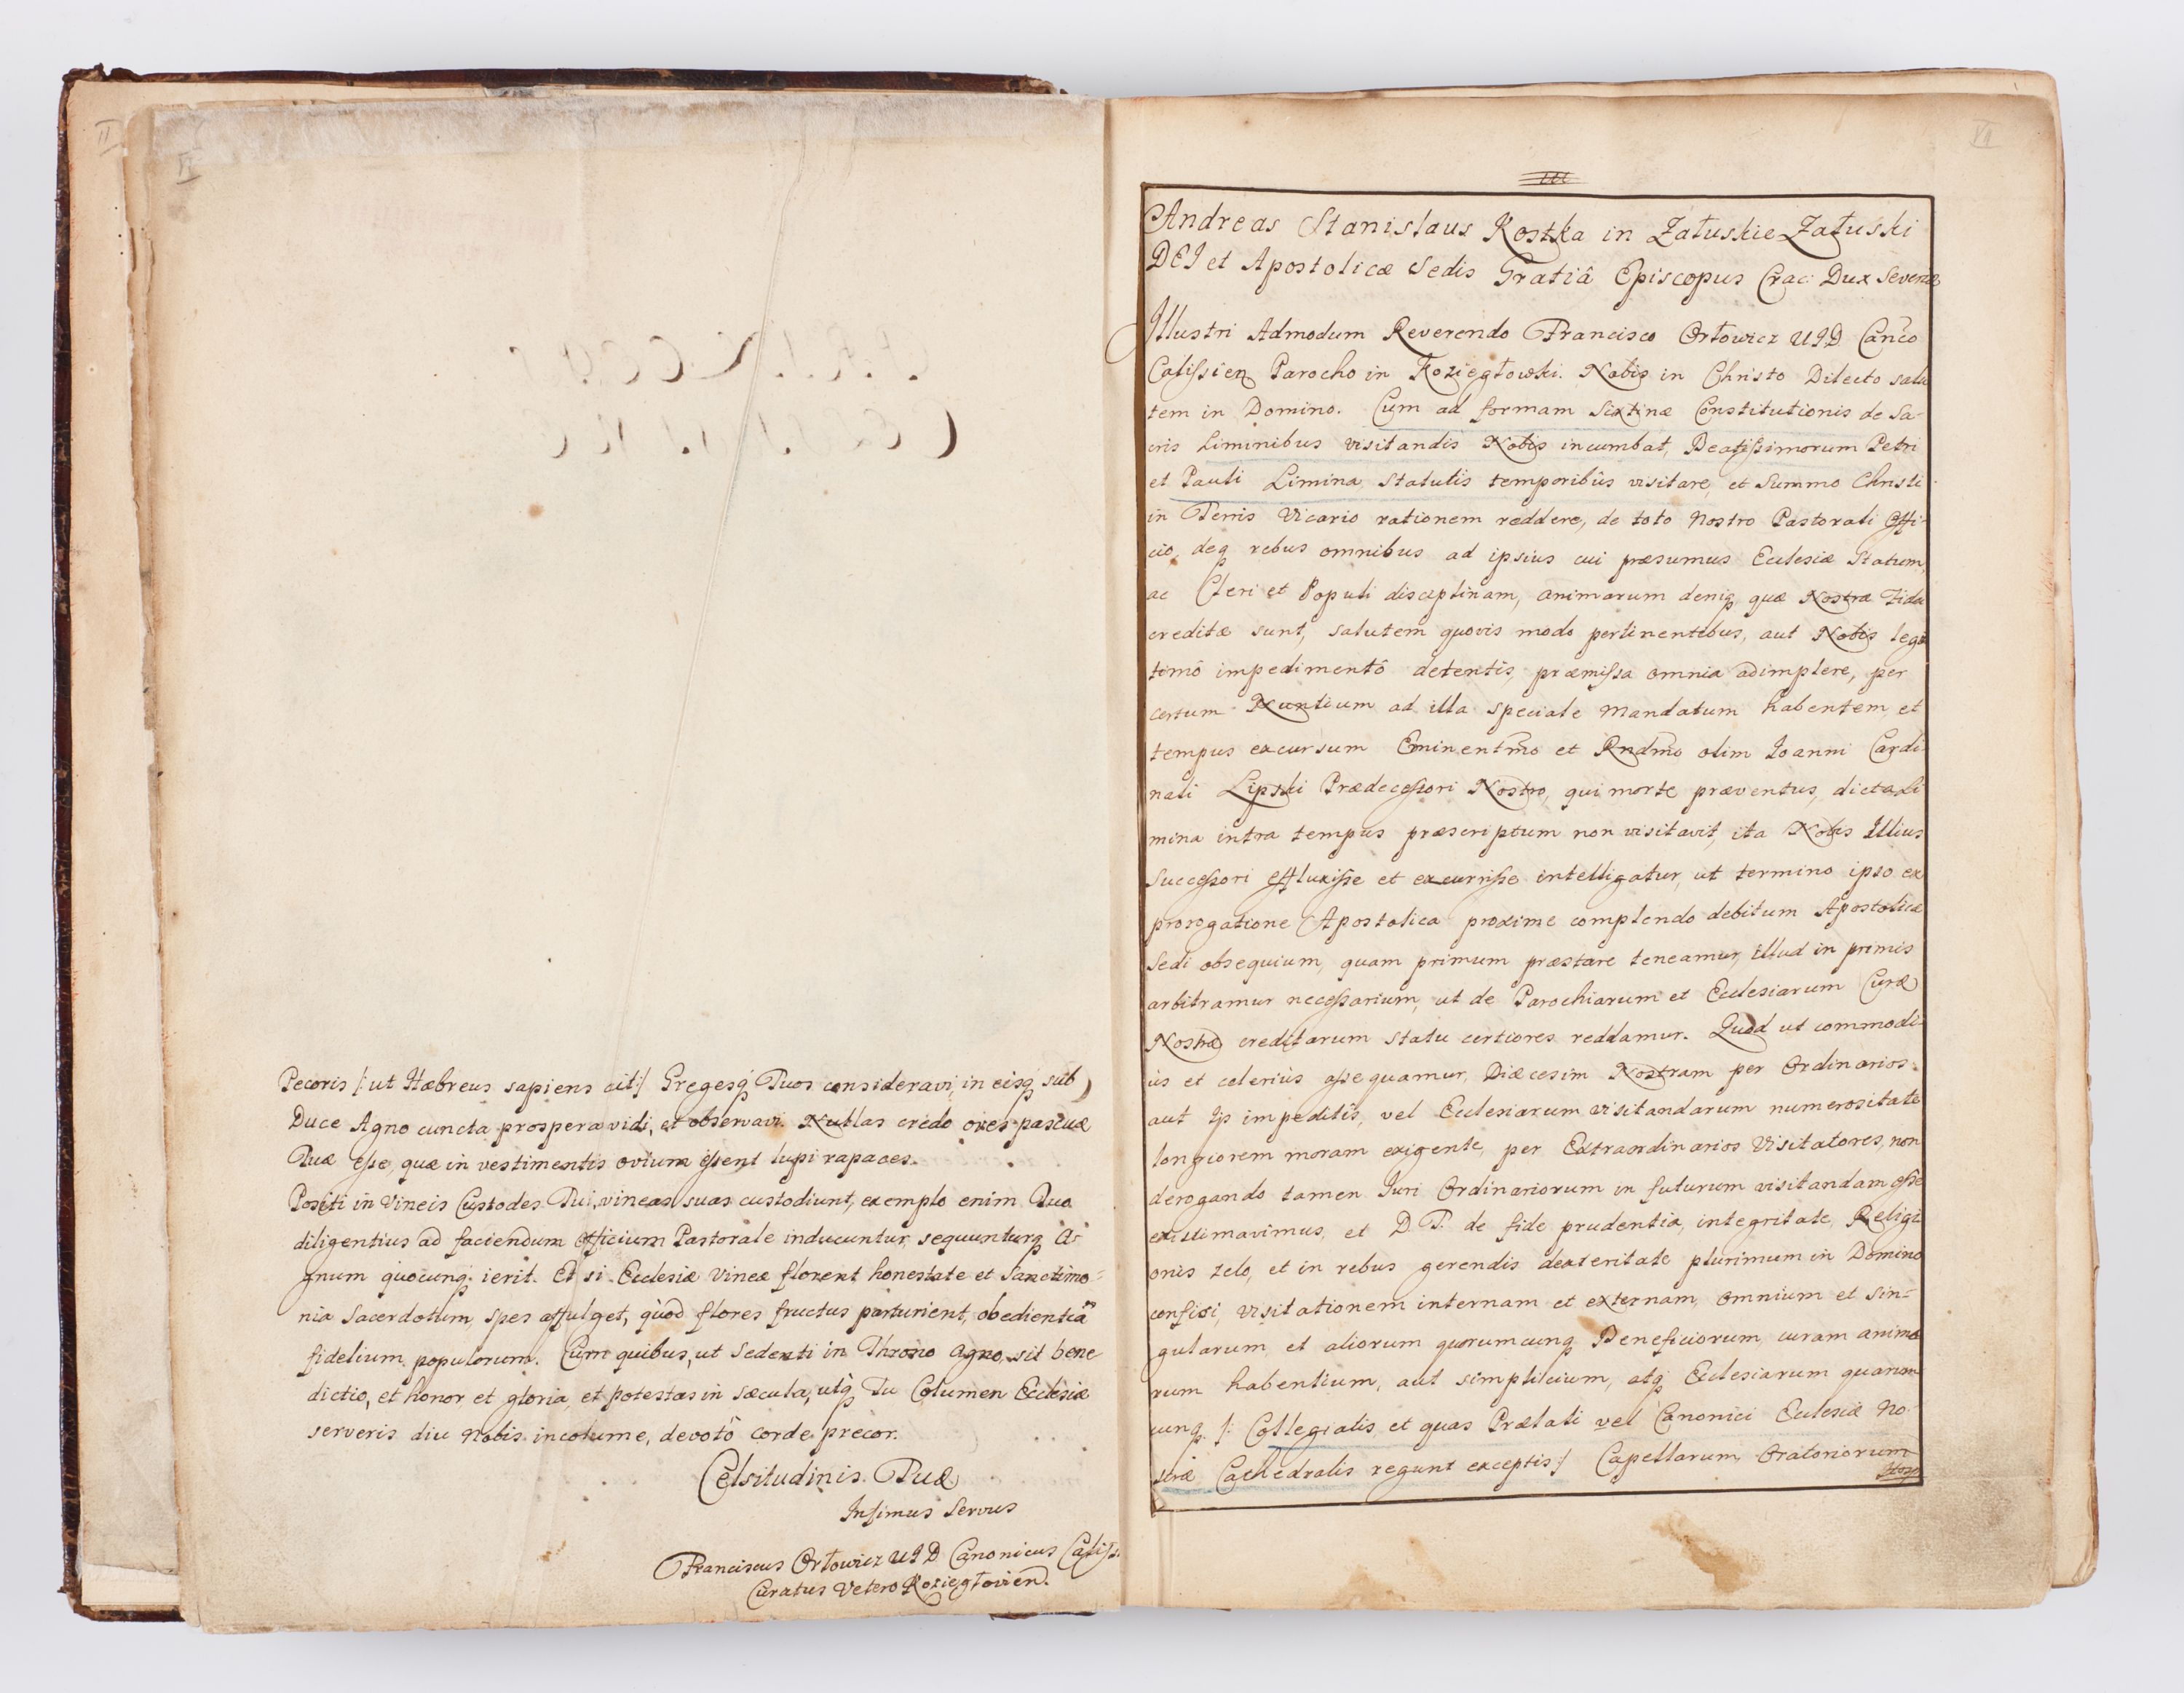 VI
Pecoris /: ut Hæbreus sapiens ait :/ Gregesq́ Tuos consideravi, in eisq́ sub
Duce Agno cuncta prospera vidi, et observavi. Nullas credo oves pascuæ
Tuæ eſse, quæ in vestimentis ovium eſsent lupi rapaces.
Positi in Vineis Custodes Tui, vineas suas custodiunt, exemplo enim Tuo
diligentius ad faciendum Officium Pastorale inducuntur, sequunturq́ A-
gnum quocunq́ ierit. Et si Ecclesiæ Vineæ florent honestate et Sanctimo-
nia Sacerdotum, spes affulget, quod flores fructus parturient, obedientiam
fidelium populorum. Cum quibus, ut Sedenti in Throno Agno sit bene
dictio, et honor et gloria, et potestas in sæcula, utq́ Tu Columen Ecclesiæ
serveris diu Nobis incolume, devotô corde precor.
Celsitudinis Tuæ
Infimus Servus
Franciscus Orłowicz UID Canonicus Caliſs.
Curatus Vetero Koziegłovien.
VII
III
Andreas Stanislaus Kostka in Załuskie Załuski
DEI et Apostolicæ Sedis Gratiâ Episcopus Crac: Dux Severiæ
Illustri Admodum Reverendo Francisco Orłowicz UID Canco
Caliſsien Parocho in Koziegłowski. Nobis in Christo Dilecto salu
tem in Domino. Cum ad formam Sixtinæ Constitutionis de Sa-
cris Liminibus visitandis Nobis incumbat, Beatiſsimorum Petri
et Pauli Limina, Statutis temporibûs visitare, et Summo Christi
in Terris Vicario rationem reddere, de toto Nostro Pastorali Offi-
cio, deq́ rebus omnibus ad ipsius cui præsumus Ecclesiæ Statum,
ac Cleri et Populi disciplinam, animarum deniq́ quæ Nostræ Fidei
creditæ sunt, salutem quovis modo pertinentibus, aut Nobis legi
timô impedimentô detentis, præmiſsa omnia adimplere, per
certum Nuntium ad illa speciale Mandatum habentem, et
tempus excursum Eminentmo et Rndmo olim Ioanni Cardi-
nali Lipski Prædeceſsori Nostro, qui morte præventus, dicta Li
mina intra tempus præscriptum non visitavit, ita Nobis Illius
Succeſsori effluxiſse et excurriſse intelligatur, ut termino ipso ex
prorogatione Apostolica proxime complendo debitum Apostolicæ
Sedi obsequium, quam primum præstare teneamur, illud in primis
arbitramur neceſsarium, ut de Parochiarum et Ecclesiarum Curæ
Nostræ creditarum statu certiores reddamur. Quod ut commodi-
ùs et celeriùs aſsequamur, Diæcesim Nostram per Ordinarios
aut Ip impeditis, vel Ecclesiarum visitandarum numerositate
longiorem moram exigente, per Extraordinarios Visitatores, non
derogando tamen Iuri Ordinariorum in futurum visitandam eſse
existimavimus, et D. T. de fide prudentia, integritate, Religi
onis zelo, et in rebus gerendis dexteritate plurimum in Domino
confisi, visitationem internam et externam, omnium et sin-
gularum, et aliorum quorumcunq́ Beneficiorum, curam anima
rum habentium, aut simplicium, atq́ Ecclesiarum quarum
cunq́ /: Collegiatis et quas Prælati vel Canonici Ecclesiæ No-
stræ Cathedralis regunt exceptis :/ Capellarum Oratoriorum
Hosp